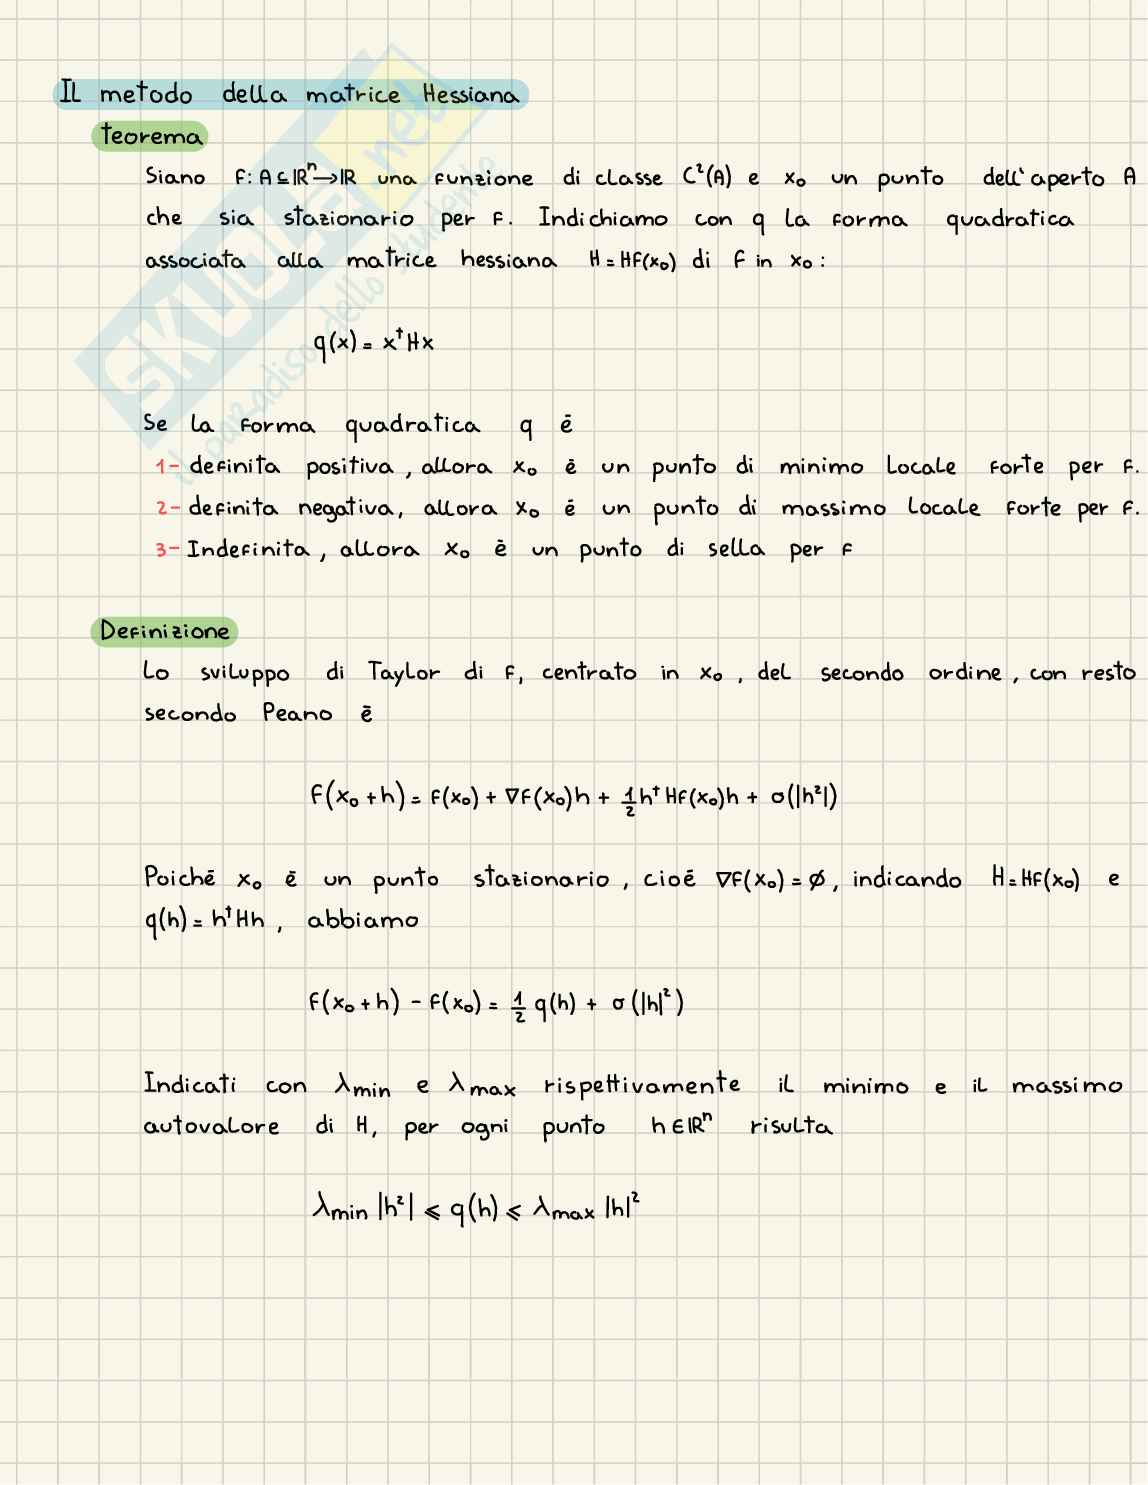 Il metodo della matrice Hessiana
teorema
Siano f: A⊆ℝⁿ→ℝ una funzione di classe C²(A) e x₀ un punto dell'aperto A
che sia stazionario per f. Indichiamo con q la forma quadratica
associata alla matrice hessiana H=Hf(x₀) di f in x₀:
q(x) = xᵗHx
Se la forma quadratica q ē
1- definita positiva, allora x₀ ē un punto di minimo locale forte per f.
2- definita negativa, allora x₀ ē un punto di massimo locale forte per f.
3- Indefinita, allora x₀ ē un punto di sella per f
Definizione
Lo sviluppo di Taylor di f, centrato in x₀, del secondo ordine, con resto
secondo Peano ē
f(x₀+h) = f(x₀) + ∇f(x₀)h + 1/2 hᵗHf(x₀)h + σ(|h²|)
Poichē x₀ ē un punto stazionario, cioē ∇f(x₀) = ∅, indicando H=Hf(x₀) e
q(h) = hᵗHh, abbiamo
f(x₀+h) - f(x₀) = 1/2 q(h) + σ(|h|²)
Indicati con λmin e λmax rispettivamente il minimo e il massimo
autovalore di H, per ogni punto h∈ℝⁿ risulta
λmin |h²| ⩽ q(h) ⩽ λmax |h|²
SKUOLA.net
il paradiso dello studente